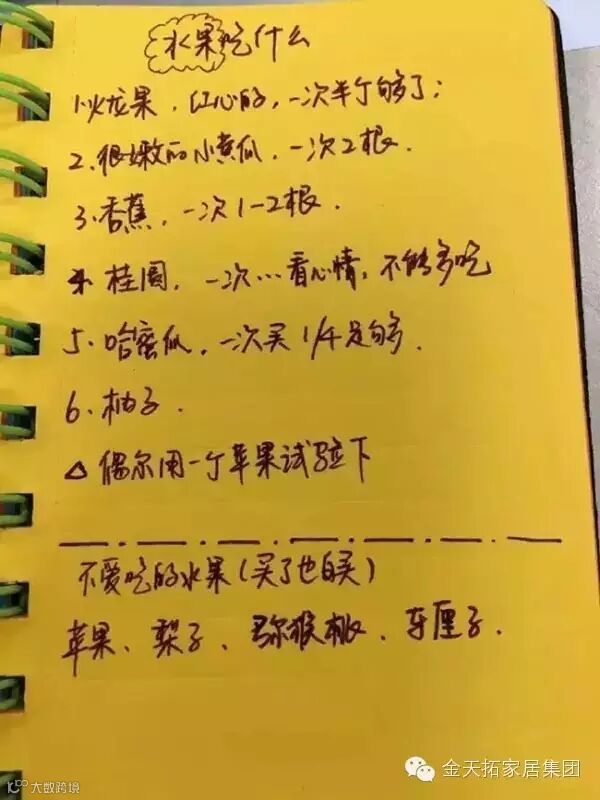 水果吃什么
1.火龙果，红心的，一次半个够了；
2、很嫩的小黄瓜，一次2根．
3、香蕉，一次1-2根．
4. 桂圆，一次…看心情，不能多吃
5、哈密瓜，一次买1/4足够．
6、柚子．
△ 偶尔用一个苹果试验下
不爱吃的水果（买了也白买）
苹果、梨子、弥猴桃、车厘子．
金天拓家居集团
10100 大数跨境